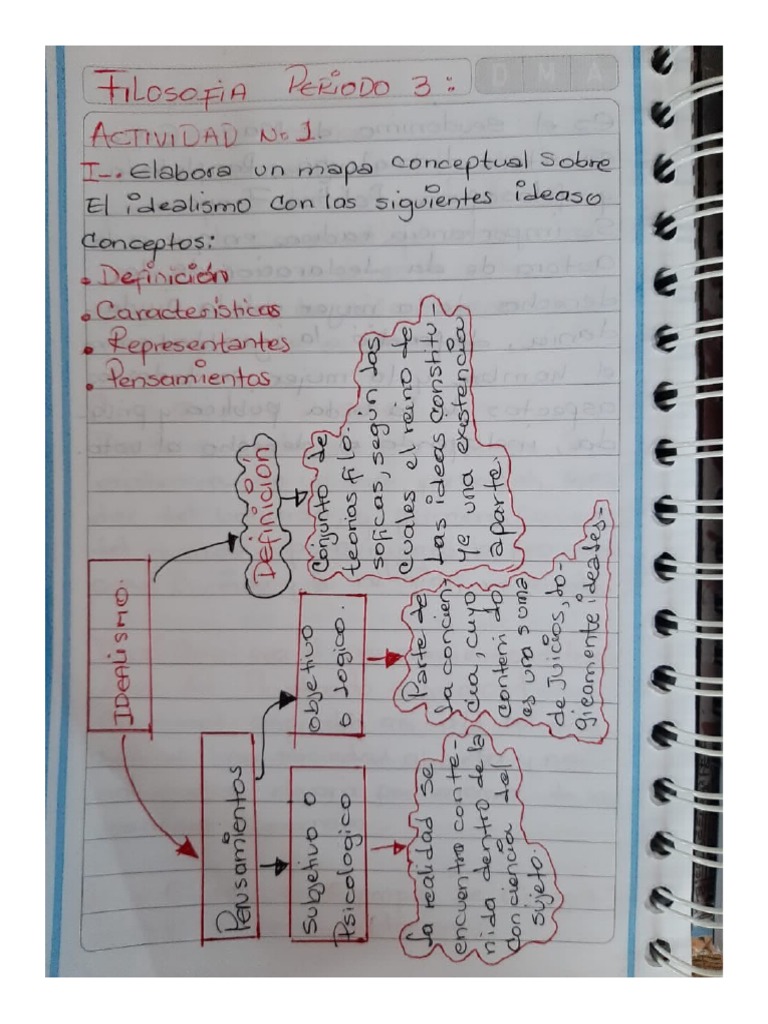 D M A
FILOSOFIA PERIODO 3:
ACTIVIDAD No 1.
I-. Elabora un mapa conceptual sobre
El idealismo con las siguientes ideas o
conceptos:
• Definición
• Caracteristicas
• Representantes
• Pensamientos
IDEALISMO.
Definición
Conjunto de
teorias filo-
soficas, según las
cuales el reino de
las ideas constitu-
ye una existencia
aparte.
Pensamientos
objetivo
o logico.
Parte de
la concien-
cia, cuyo
contenido
es una suma
de Juicios, lo-
gicamente ideales-
Subjetivo o
Psicologico
la realidad se
encuentro conte-
nida dentro de la
conciencia del
sujeto.